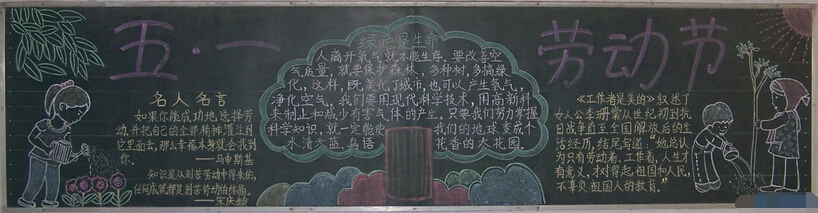 五·一
劳动节
名人名言
如果你能成功地选择劳
动,并把自己的全部精神灌注到
它里面去,那么幸福本身就会找到
你。
——乌申斯基
知识是从刻苦劳动中得来的,
任何成就都是刻苦劳动的结晶。
——宋庆龄
绿色是生命
人离开氧气就不能生存。要改善空
气质量,就要保护森林,多种树,多搞绿
化,这样,既美化了城市,也可以产生氧气,
净化空气。我们要用现代科学技术,用高新科
来制止和减少有害气体的产生。只要我们努力掌握
科学知识,就一定能使 我们的地球变成个
水清天蓝、鸟语 花香的大花园。
《工作者是美的》叙述了
女人公李珊棠从世纪初到抗
日战争直至全国解放后的生
活经历,结尾写道:“她总认
为只有劳动着、工作着,人生才
有意义,才对得起祖国和人民,
不辜负祖国人的教育。”